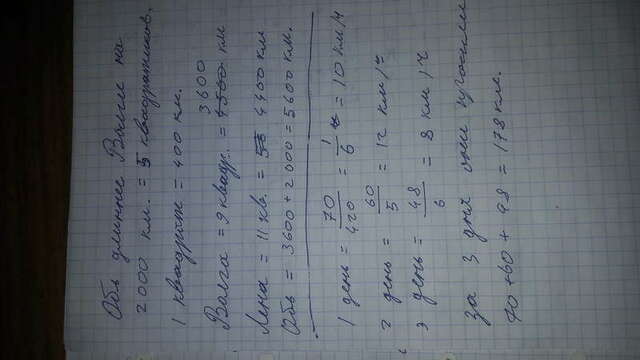 Обь длиннее Волги на
2000 км. = 5 квадратиков.
1 квадрат = 400 км.
3600
Волга = 9 квадр. = 4500 км
Лена = 11 кв. = 4400 км
Обь = 3600 + 2000 = 5600 км.
1 день = 70/420 = 1/6 ч = 10 км/ч
2 день = 60/5 = 12 км/ч
3 день = 48/6 = 8 км/ч
За 3 дня они
70 + 60 + 48 = 178 км.